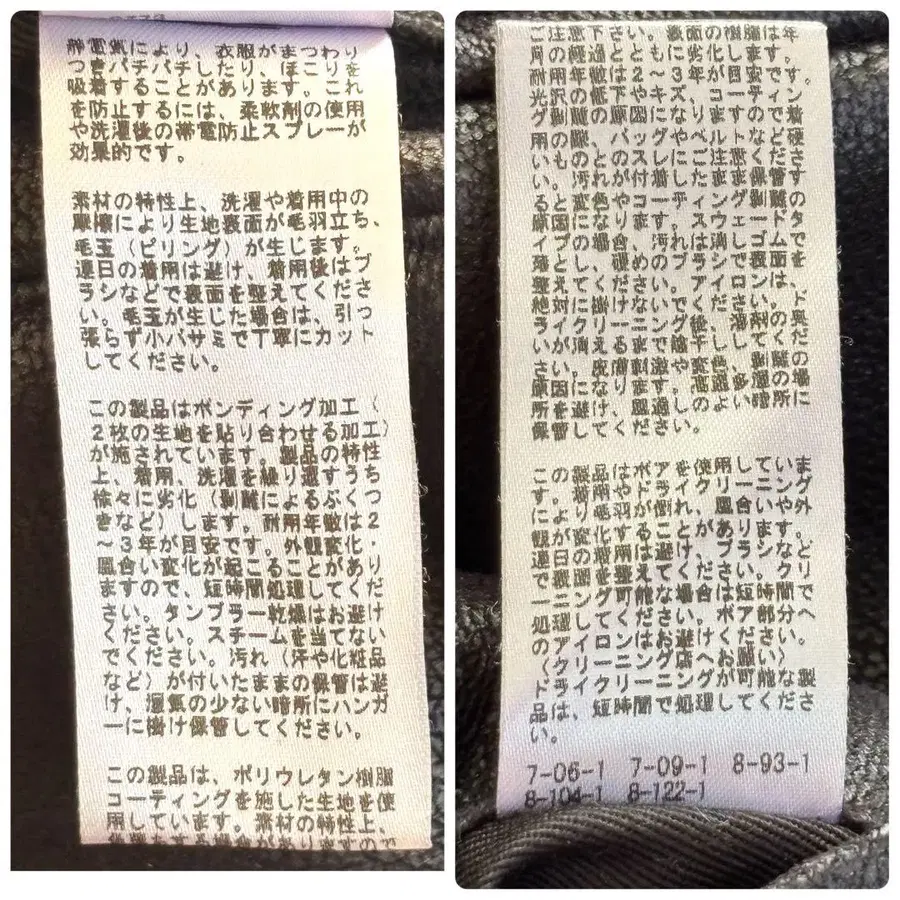 静電気により、衣服がまつわり
つきパチパチしたり、ほこりを
吸着することがあります。これ
を防止するには、柔軟剤の使用
や洗濯後の帯電防止スプレーが
効果的です。
素材の特性上、洗濯や着用中の
摩擦により生地表面が毛羽立ち、
毛玉（ピリング）が生じます。
連日の着用は避け、着用後はブ
ラシなどで表面を整えてくださ
い。毛玉が生じた場合は、引っ
張らず小バサミで丁寧にカット
してください。
この製品はボンディング加工（
２枚の生地を貼り合わせる加工）
が施されています。製品の特性
上、着用、洗濯を繰り返すうち
徐々に劣化（剥離によるぶくつ
きなど）します。耐用年数は２
～３年が目安です。外観変化・
風合い変化が起こることがあり
ますので、短時間処理してくだ
さい。タンブラー乾燥はお避け
ください。スチームを当てない
でください。汚れ（汗や化粧品
など）が付いたままの保管は避
け、湿気の少ない暗所にハンガ
ーに掛け保管してください。
この製品は、ポリウレタン樹脂
コーティングを施した生地を使
用しています。素材の特性上、
ご注意下さい。表面の樹脂は年
月の経過とともに劣化します。
耐用年数は２～３年が目安です。
光沢の低下やキズ、コーティン
グ剥離の原因になりますので着
用の際、バッグやベルトなど硬
いものとのスレにご注意くださ
い。汚れが付着したまま保管す
ると変色やコーティング剥離の
原因になります。スウェードタ
イプの場合、汚れは消しゴムで
落とし、硬めのブラシで表面を
整えてください。アイロンは、
絶対に掛けないでください。ド
ライクリーニング後、溶剤の臭
いが消えるまで陰干ししてくだ
さい。皮膚刺激や変色、剥離の
原因になります。高温多湿の場
所を避け、風通しのよい暗所に
保管してください。
この製品はボアを使用していま
す。着用やドライクリーニング
により毛羽が倒れ、風合いや外
観が変化することがあります。
連日の着用は避け、ブラシなど
で表面を整えてください。クリ
ーニング可能な場合は短時間で
処理してください。ボア部分へ
のアイロンはお避けください。
（クリーニング店へお願い）
ドライクリーニングが可能な製
品は、短時間で処理してくださ
い。
7-06-1 7-09-1 8-93-1
8-104-1 8-122-1